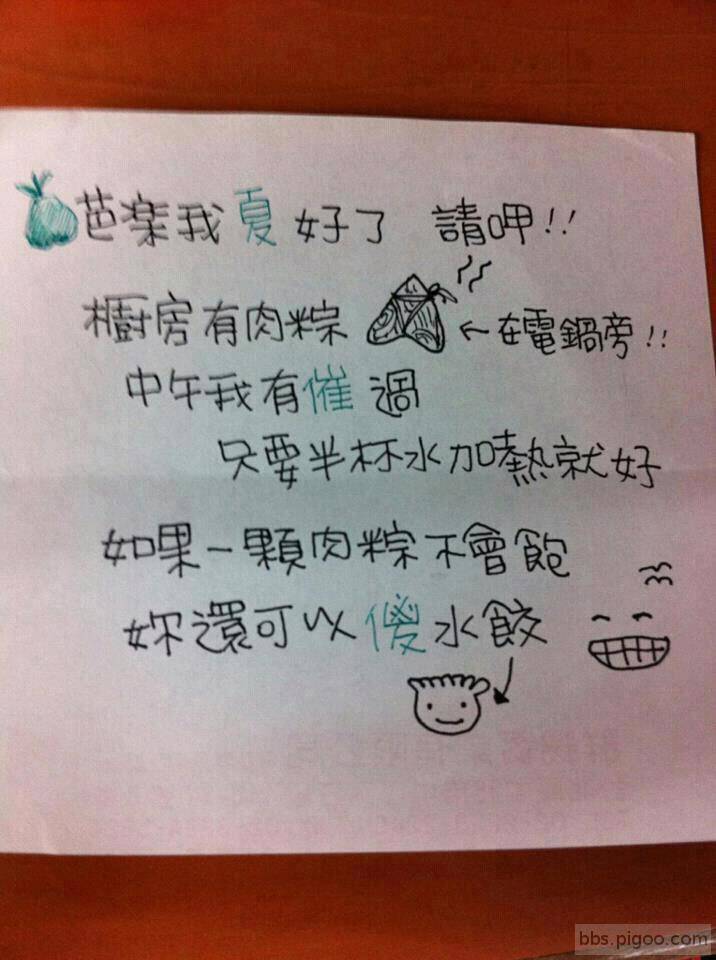 芭楽我夏好了 請呷!!
廚房有肉粽 ←在電鍋旁!!
中午我有催過
只要半杯水加熱就好
如果一顆肉粽不會飽
妳還可以傻水餃
bbs.pigoo.com